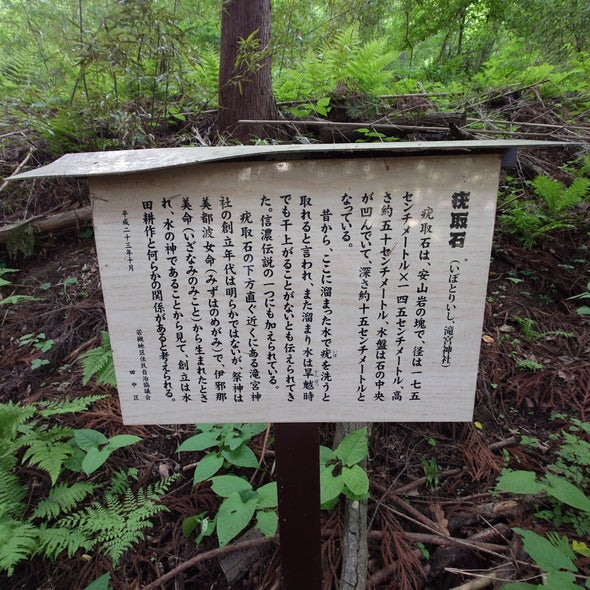 疣取石（いぼとりいし、滝宮神社）
疣取石は、安山岩の塊で、径は一七五
センチメートル×一四五センチメートル、高
さ約五十センチメートル、水盤は石の中央
が凹んでいて、深さ約十五センチメートルと
なっている。
昔から、ここに溜まった水で疣を洗うと
取れると言われ、また溜まり水は旱魃時
でも干上がることがないとも伝えられてき
た。信濃伝説の一つにも加えられている。
疣取石の下方直ぐ近くにある滝宮神
社の創立年代は明らかではないが、祭神は
美都波女命（みずはのめがみ）で、伊邪那
美命（いざなみのみこと）から生まれたとさ
れ、水の神であることから見て、創立は水
田耕作と何らかの関係があると考えられる。
平成二十三年十月
若槻地区住民自治協議会
田中区